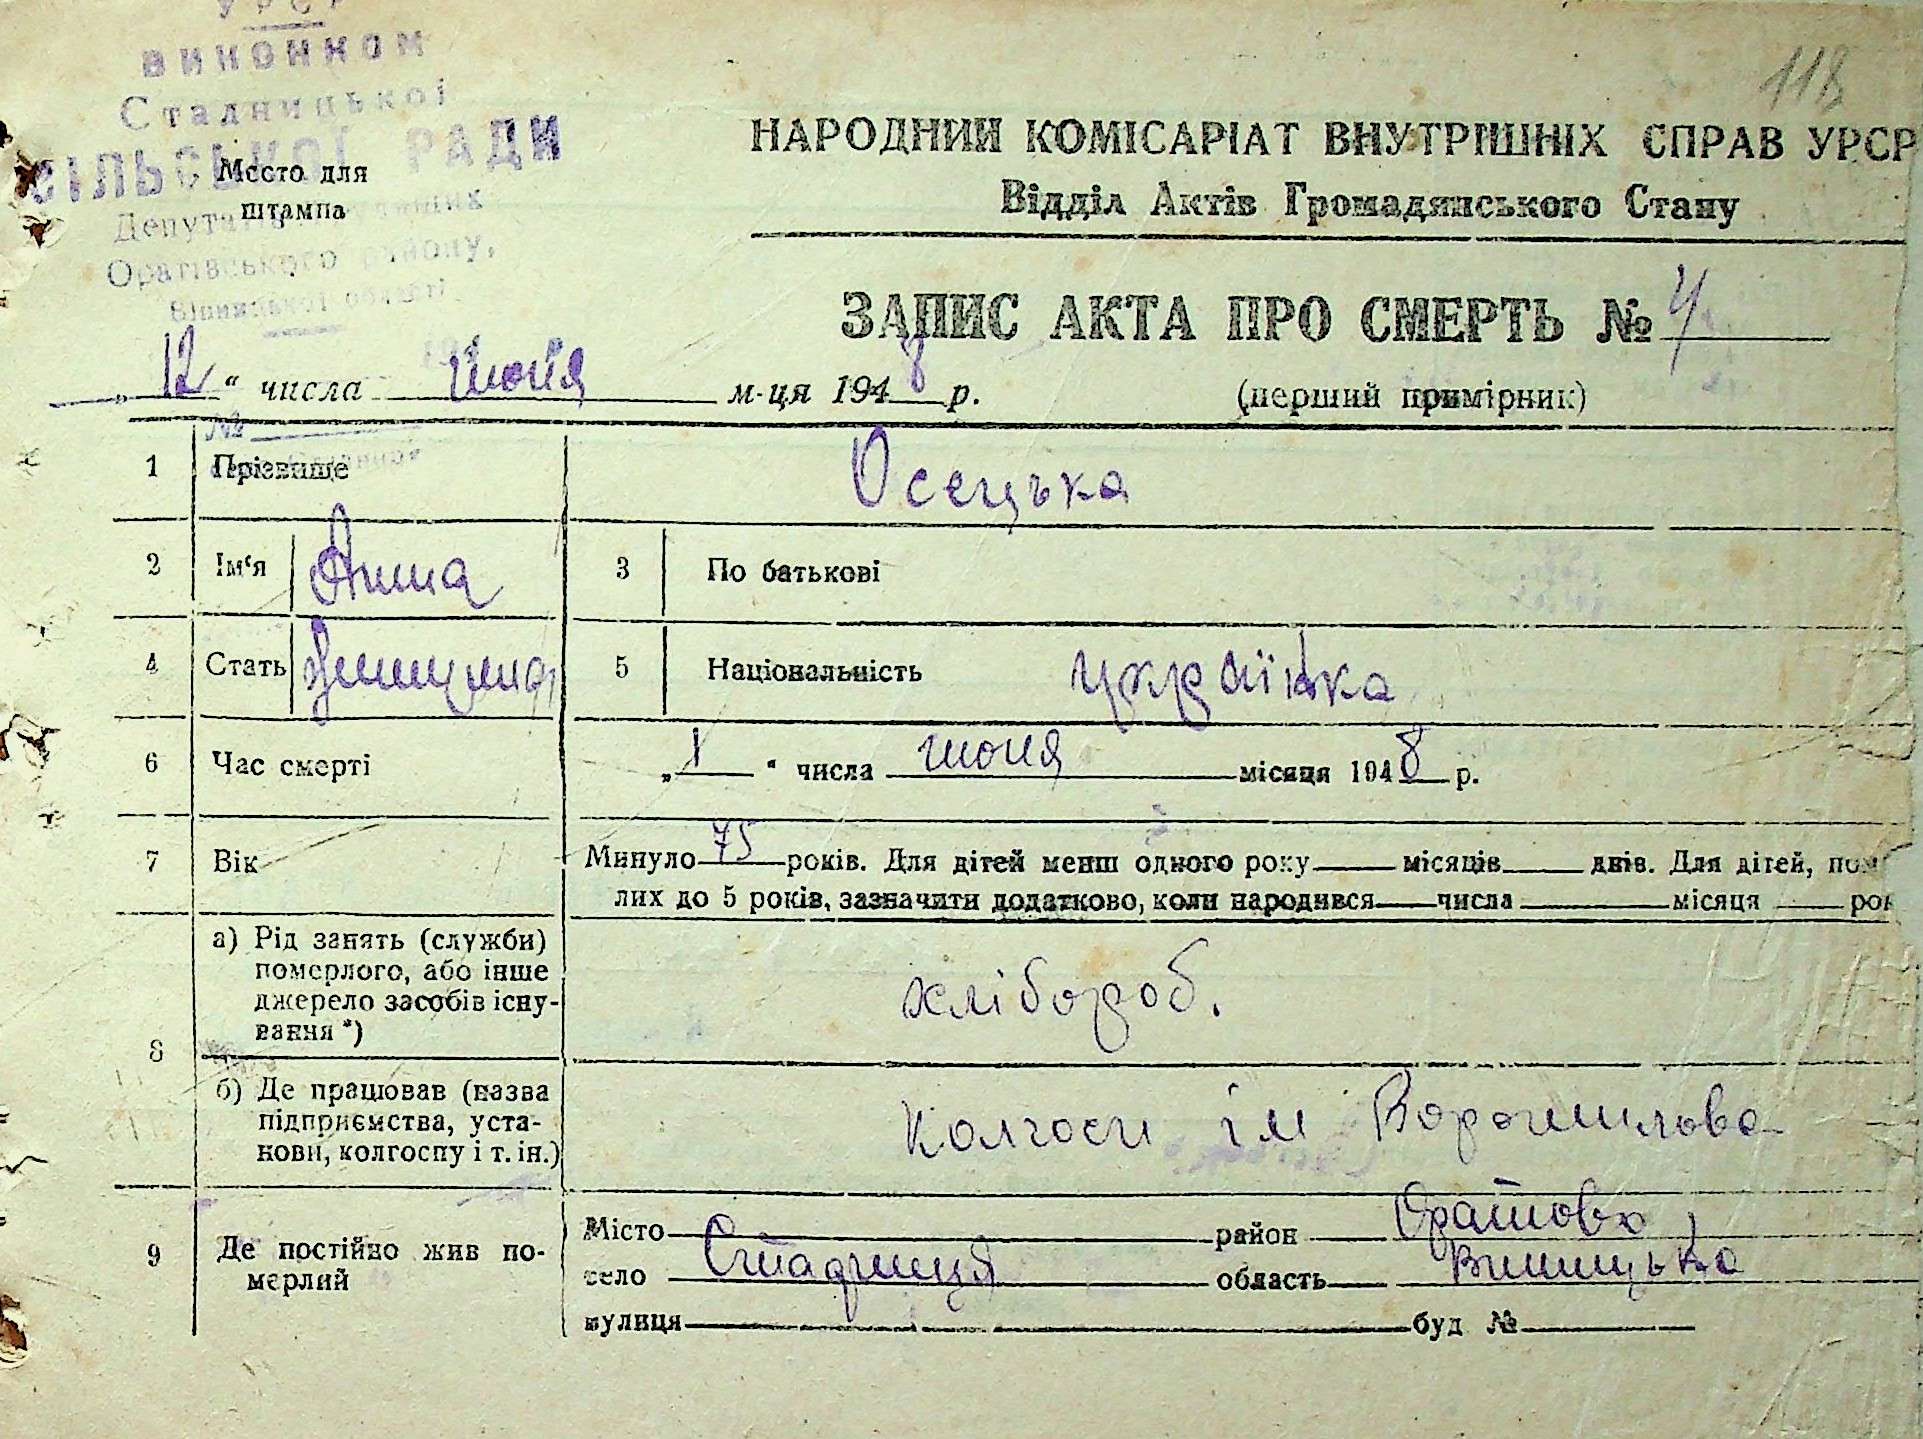 УРСР
виконком
Стадницької
СІЛЬСЬКОЇ РАДИ
Место для
штампа
Депутатів трудящих
Оратівського району,
Вінницької області
118
НАРОДНИЙ КОМІСАРІАТ ВНУТРІШНІХ СПРАВ УРСР
Відділ Актів Громадянського Стану
ЗАПИС АКТА ПРО СМЕРТЬ № 4
„ 12 “ числа июня м-ця 1948 р.
(перший примірник)
№
1 Прізвище Осецька
2 Ім‘я Анна 3 По батькові
4 Стать 5 Національність українка
6 Час смерті „ 1 “ числа июня місяця 1948 р.
7 Вік Минуло 75 років. Для дітей менш одного року місяців днів. Для дітей, пом
лих до 5 років, зазначити додатково, коли народився числа місяця рок
8 а) Рід занять (служби)
померлого, або інше
джерело засобів існу-
вання*)
хлібороб.
б) Де працював (назва
підприємства, уста-
нови, колгоспу і т. ін.)
Колгосп ім Ворошилова
9 Де постійно жив по-
мерлий
Місто район Оратово
село Стадниця область Винницька
вулиця буд №